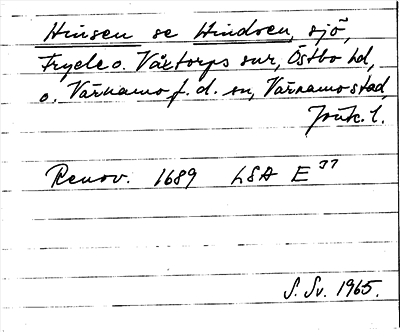 Hinsen se Hindsen, sjö,
Tryele o. Våxtorps snr, Östbo hd,
o. Värnamo f. d. sn, Värnamo stad,
Jönk. l.
Renov. 1689 LSA E 37
S. Sv. 1965.